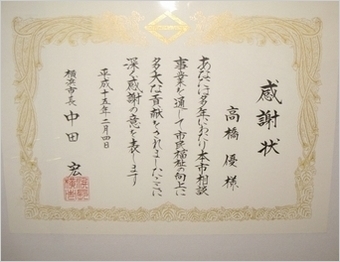 感謝状
高橋優様
あなたは多年にわたり本市相談
事業を通して市民福祉の向上に
多大な貢献をされましたここに
深く感謝の意を表します
平成十五年二月四日
横浜市長 中田 宏